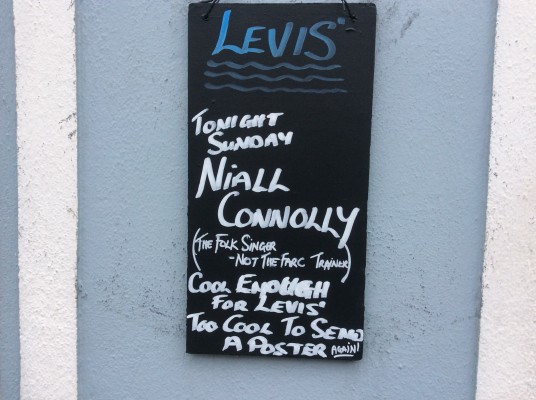 LEVIS'
TONIGHT
SUNDAY
NIALL
CONNOLLY
(THE FOLK SINGER
-NOT THE FARC TRAINER)
COOL ENOUGH
FOR LEVIS'
TOO COOL TO SEND
A POSTER AGAIN!